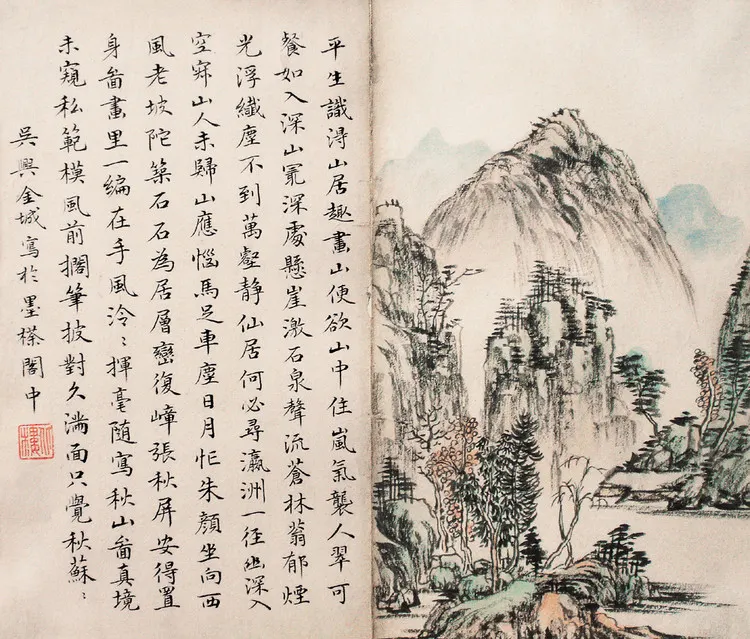 平生識得山居趣畫山便欲山中住嵐氣襲人翠可
餐如入深山最深處懸崖激石泉聲流蒼林蓊郁煙
光浮纖塵不到萬壑静仙居何必尋瀛洲一徑幽深入
空寂山人未歸山應惱馬足車塵日月忙朱顔坐向西
風老坡陀築石石為居層巒復嶂張秋屏安得置
身啚畫里一编在手風泠〻揮毫随寫秋山啚真境
未窺私範模風前擱筆披對久滿面只覺秋蘇〻
吳興金城寫於墨楪閣中